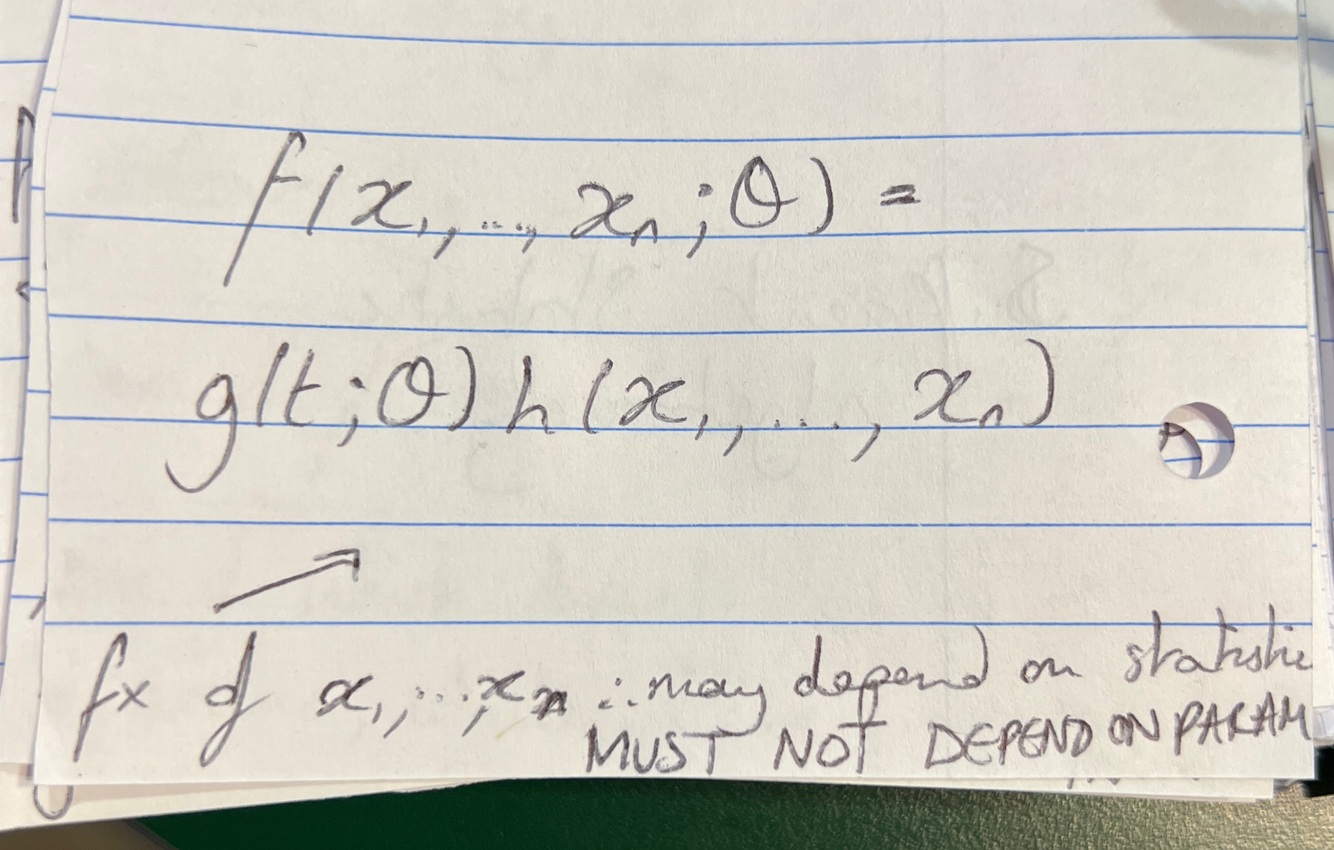 f(x₁,...,xₙ;θ) =
g(t;θ)h(x₁,...,xₙ)
fx of x₁,...,xₙ ∴ may depend on statistic
MUST NOT DEPEND ON PARAM